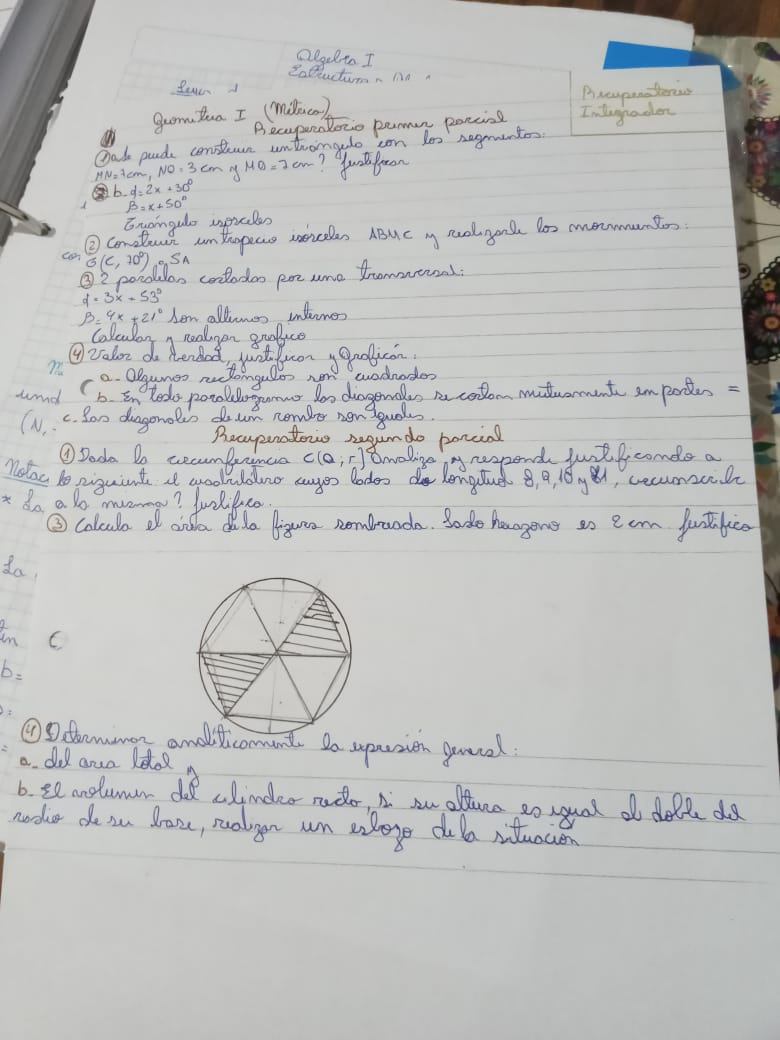 Algebra I
Estructura
Geometria I (Métrica)
Recuperatorio
Integrador
Recuperatorio primer parcial
① a. Se puede construir un triángulo con los segmentos:
MN=7cm, NO=3cm y MO=7cm? Justificar
b. α=2x+30°
β=x+50°
Triángulo isósceles
② Construir un trapecio isósceles ABMC y realizarle los movimientos:
G(C, 70°) o SA
③ 2 paralelas cortadas por una transversal:
α=3x+53°
β=4x+21° Son alternos internos
Calcular y realizar grafico
④ Valor de verdad, justificar y graficar.
a- Algunos rectángulos son cuadrados
b- En todo paralelogramo las diagonales se cortan mutuamente en partes =
c. Las diagonales de un rombo son iguales.
Recuperatorio segundo parcial
① Dada la circunferencia C(O; r) Analiza y responde justificando a
lo siguiente: el cuadrilatero cuyos lados de longitud 8, 9, 10 y 11, circunscribe
a la misma? Justifica.
③ Calcula el área de la figura sombreada. Lado hexagono es 2 cm. Justifica
④ Determinar analíticamente la expresión general:
a- del area total y
b- El volumen del cilindro recto, si su altura es igual al doble del
radio de su base, realizar un esbozo de la situación